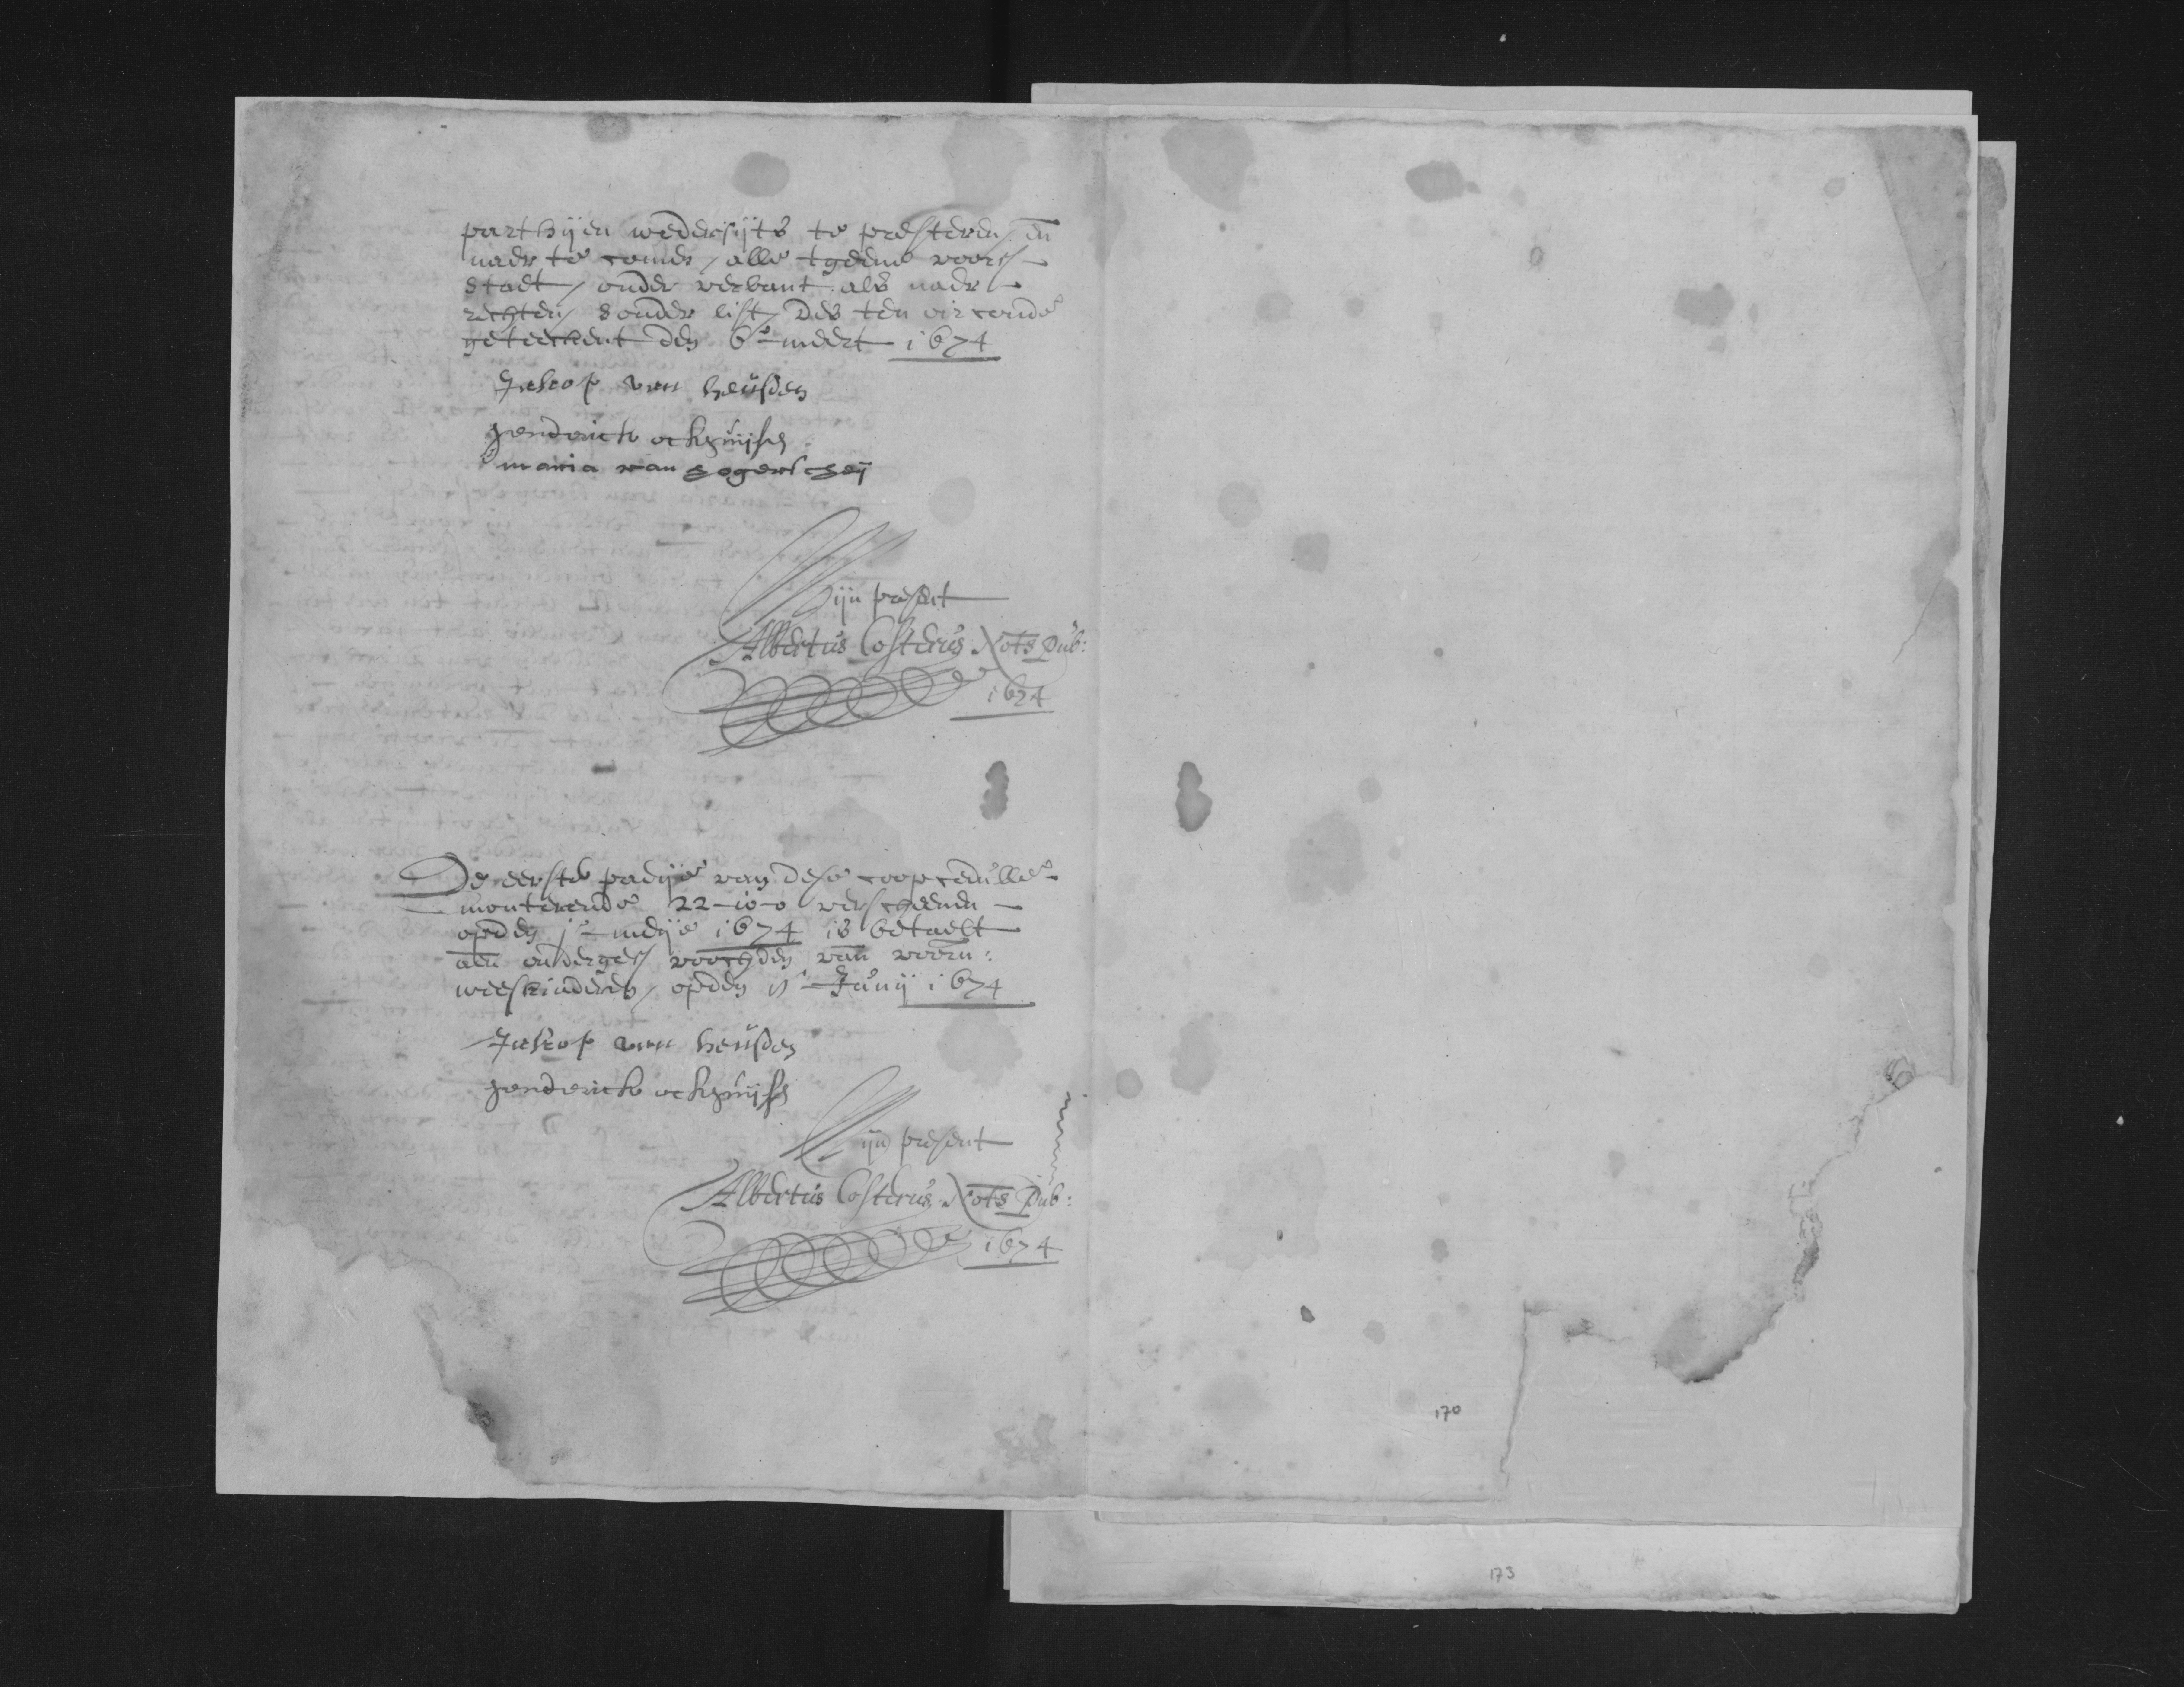 parthijen wedersijts te presteren, en
naer te comen, alle tgeene voors
staet, onder verbant als naer
rechten, sonder list, Des ten oirconde
geteeckent den 6e meert 1674
Jakop van heusden
Henderick
maria van
Mijn present
Albertus Costerus Nots Pub:
1674
De eerste padije van dese coopcedulle
monterende 22-10-0 verscheenen
opden 1e meije 1674 is betaelt
aen onderges voochden van voorn:
weeskinderen, opden Junij 1674
Jakop van heusden
Henderick
Mijn present
Albertus Costerus Nots Pub:
1674
170
173